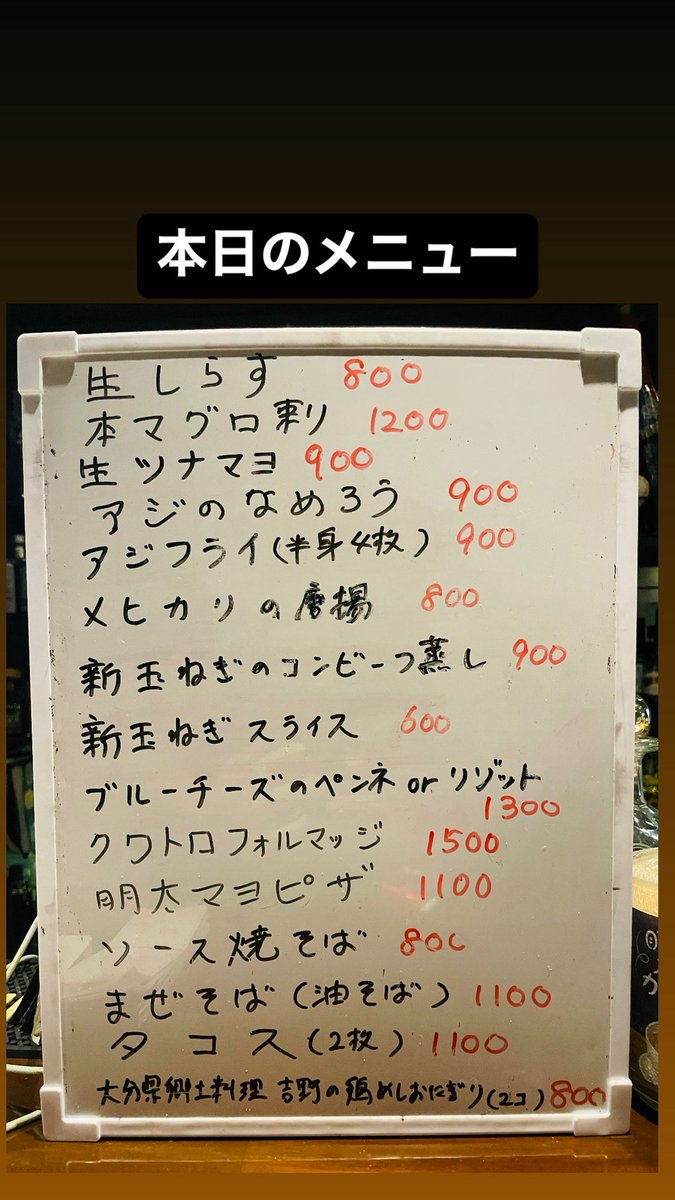 本日のメニュー
生しらす 800
本マグロ刺 1200
生ツナマヨ 900
アジのなめろう 900
アジフライ(半身4枚) 900
メヒカリの唐揚 800
新玉ねぎのコンビーフ蒸し 900
新玉ねぎスライス 600
ブルーチーズのペンネ or リゾット
1300
クワトロフォルマッジ 1500
明太マヨピザ 1100
ソース焼そば 800
まぜそば(油そば) 1100
タコス(2枚) 1100
大分県郷土料理 吉野の鶏めしおにぎり(2コ) 800